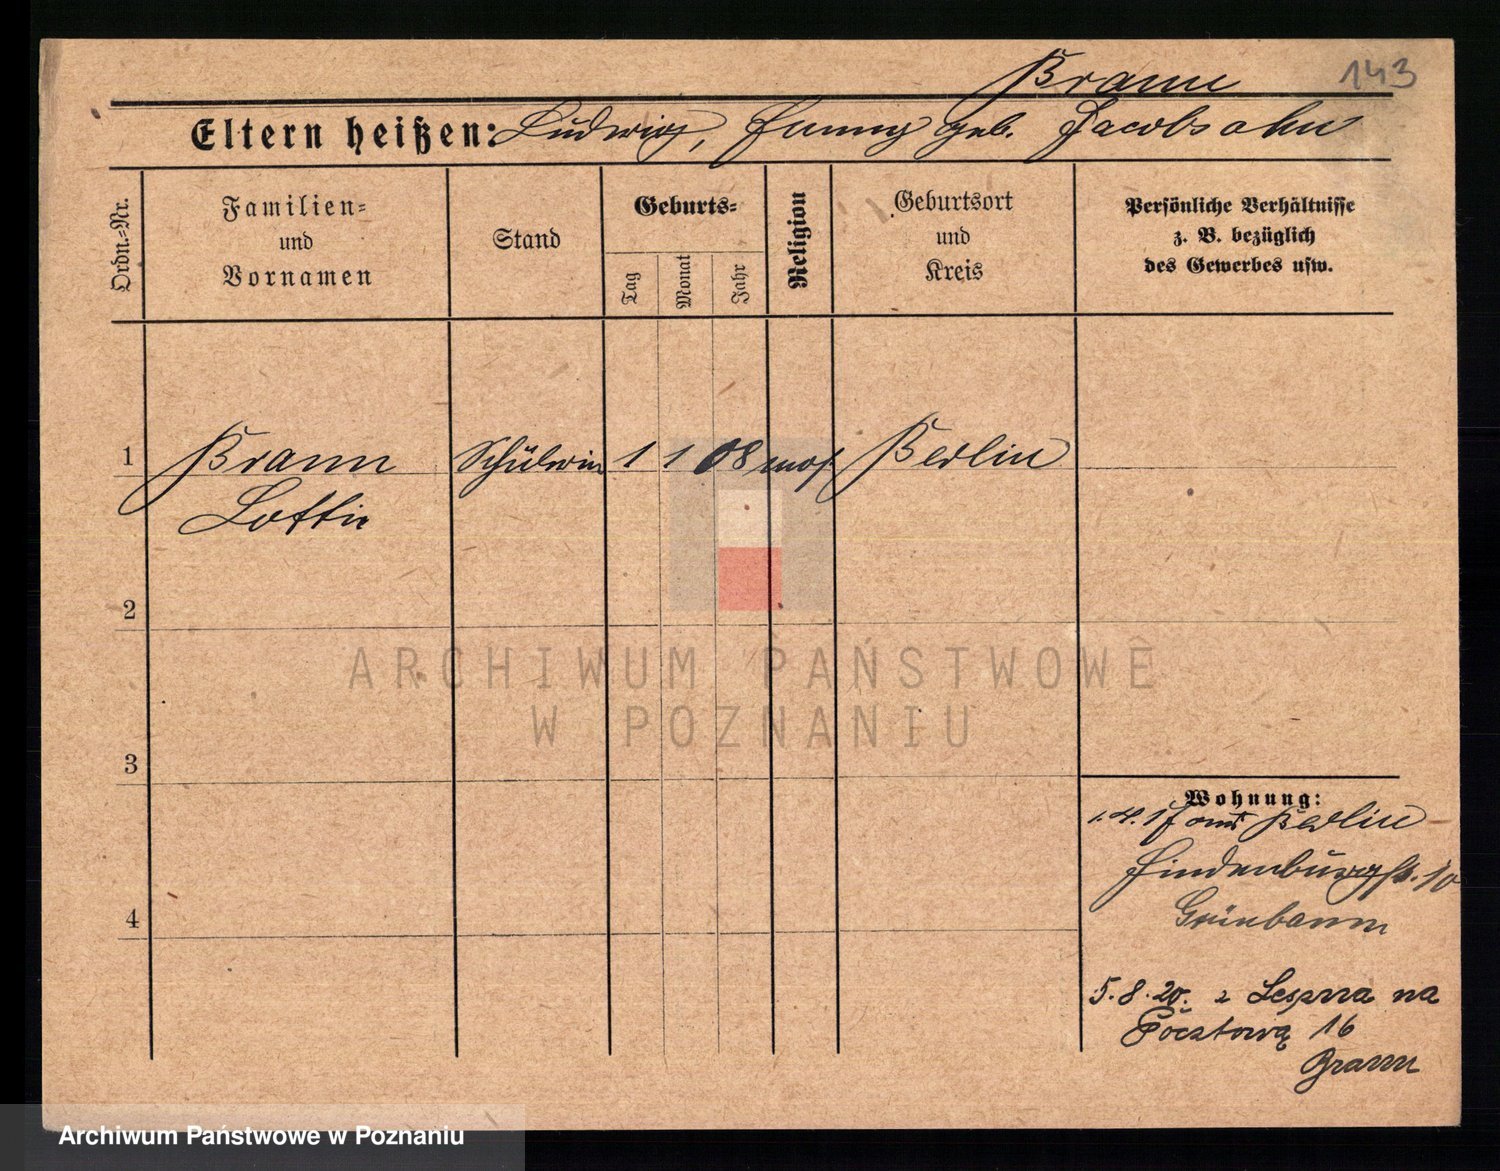 Brann
143
Eltern heißen: Ludwig, Fanny geb. Jacobsohn
Ordn.=Nr.
Familien=
und
Vornamen
Stand
Geburts=
Tag
Monat
Jahr
Religion
Geburtsort
und
Kreis
Persönliche Verhältnisse
z. B. bezüglich
des Gewerbes usw.
1 Brann Schülerin 1 1 08 mos. Berlin
Lottie
2
3
4
ARCHIWUM PAŃSTWOWE
W POZNANIU
Wohnung:
1.4.17 aus Berlin
Hindenburgst. 10
Grünbaum
5.8.20. z Leszna na
Pocztową 16
Brann
Archiwum Państwowe w Poznaniu